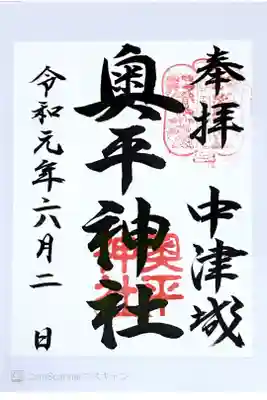 奉拝　中津城
奥平神社
令和元年六月二日
奥平
神社
CamScannerでスキャン